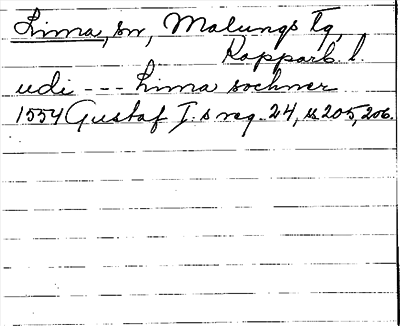 Lima, sn, Malungs tg,
Kopparb. l.
udi --- Lima sochner
1554 Gustaf I.s reg. 24, s. 205, 206.